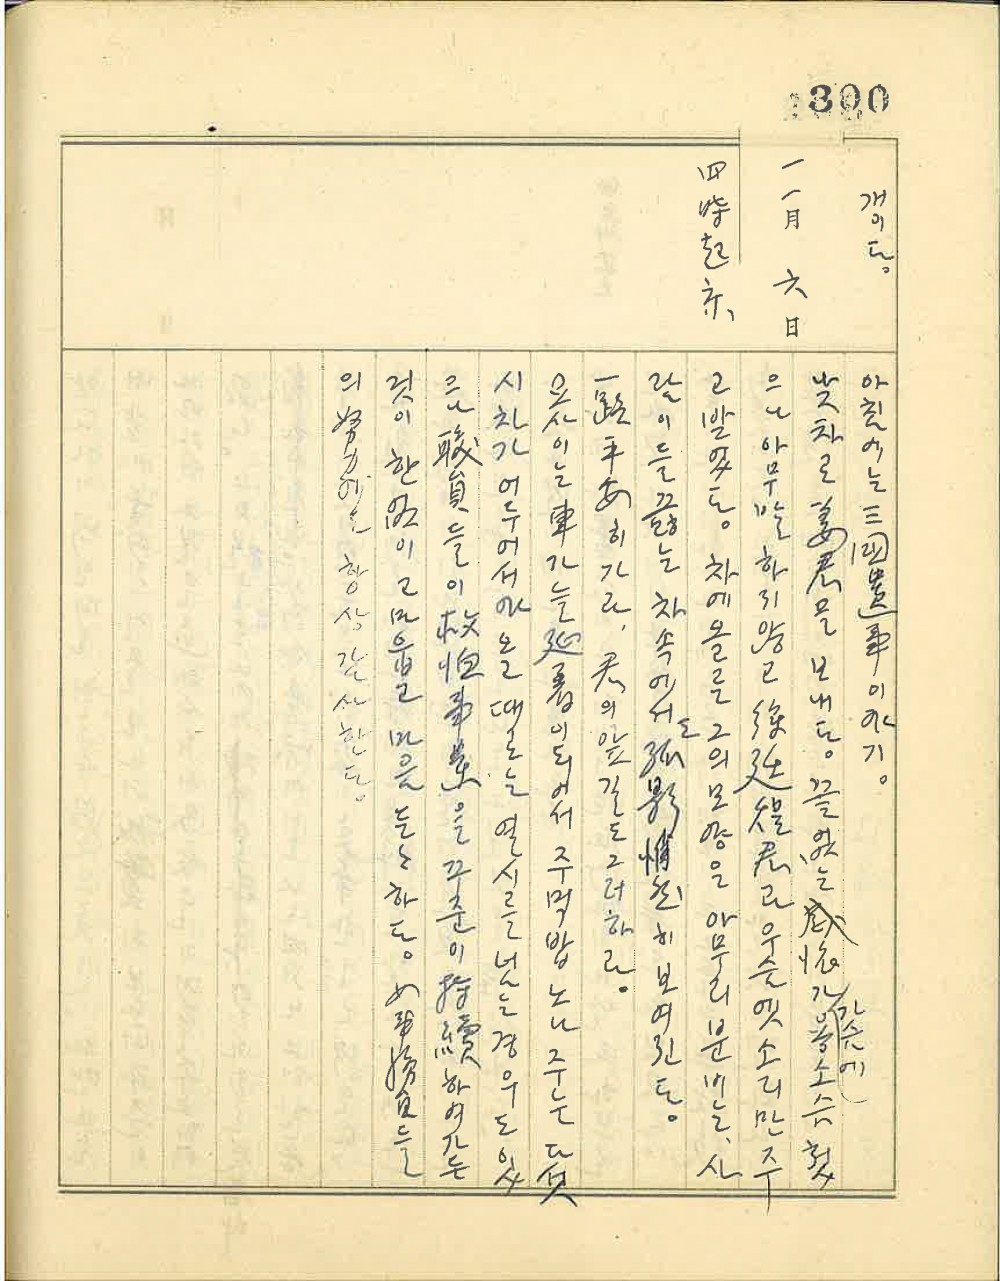 300
개이다。
一一月 六日
四時起床、
아침에는 三國遺事이야기。
낮차로 姜君을 보내다。끝없는 感懷가 가슴에 용소슴 첬
으나 아무말 하지 않고 徐廷 君과 우슬엣소리만 주
고 받었다。차에 올른 그의 모양은 아무리 분비는、사
람이들 끓는 차속에서도 孤影悄然히 보여진다。
一路平安히 가라、君의 앞길도 그러하라。
요사이는 車가 늘 延着이 되어서 주먹밥 노나 주는 다섯
시차가 어두어서야 올 때도 는 열시를 넘는 경우도 있
으나 職員들이 救恤事業을 꾸준이 持續하여가는
것이 한없이 고마웁고 마음 든든하다。女事務員들
의 努力에도 항상 감사한다。